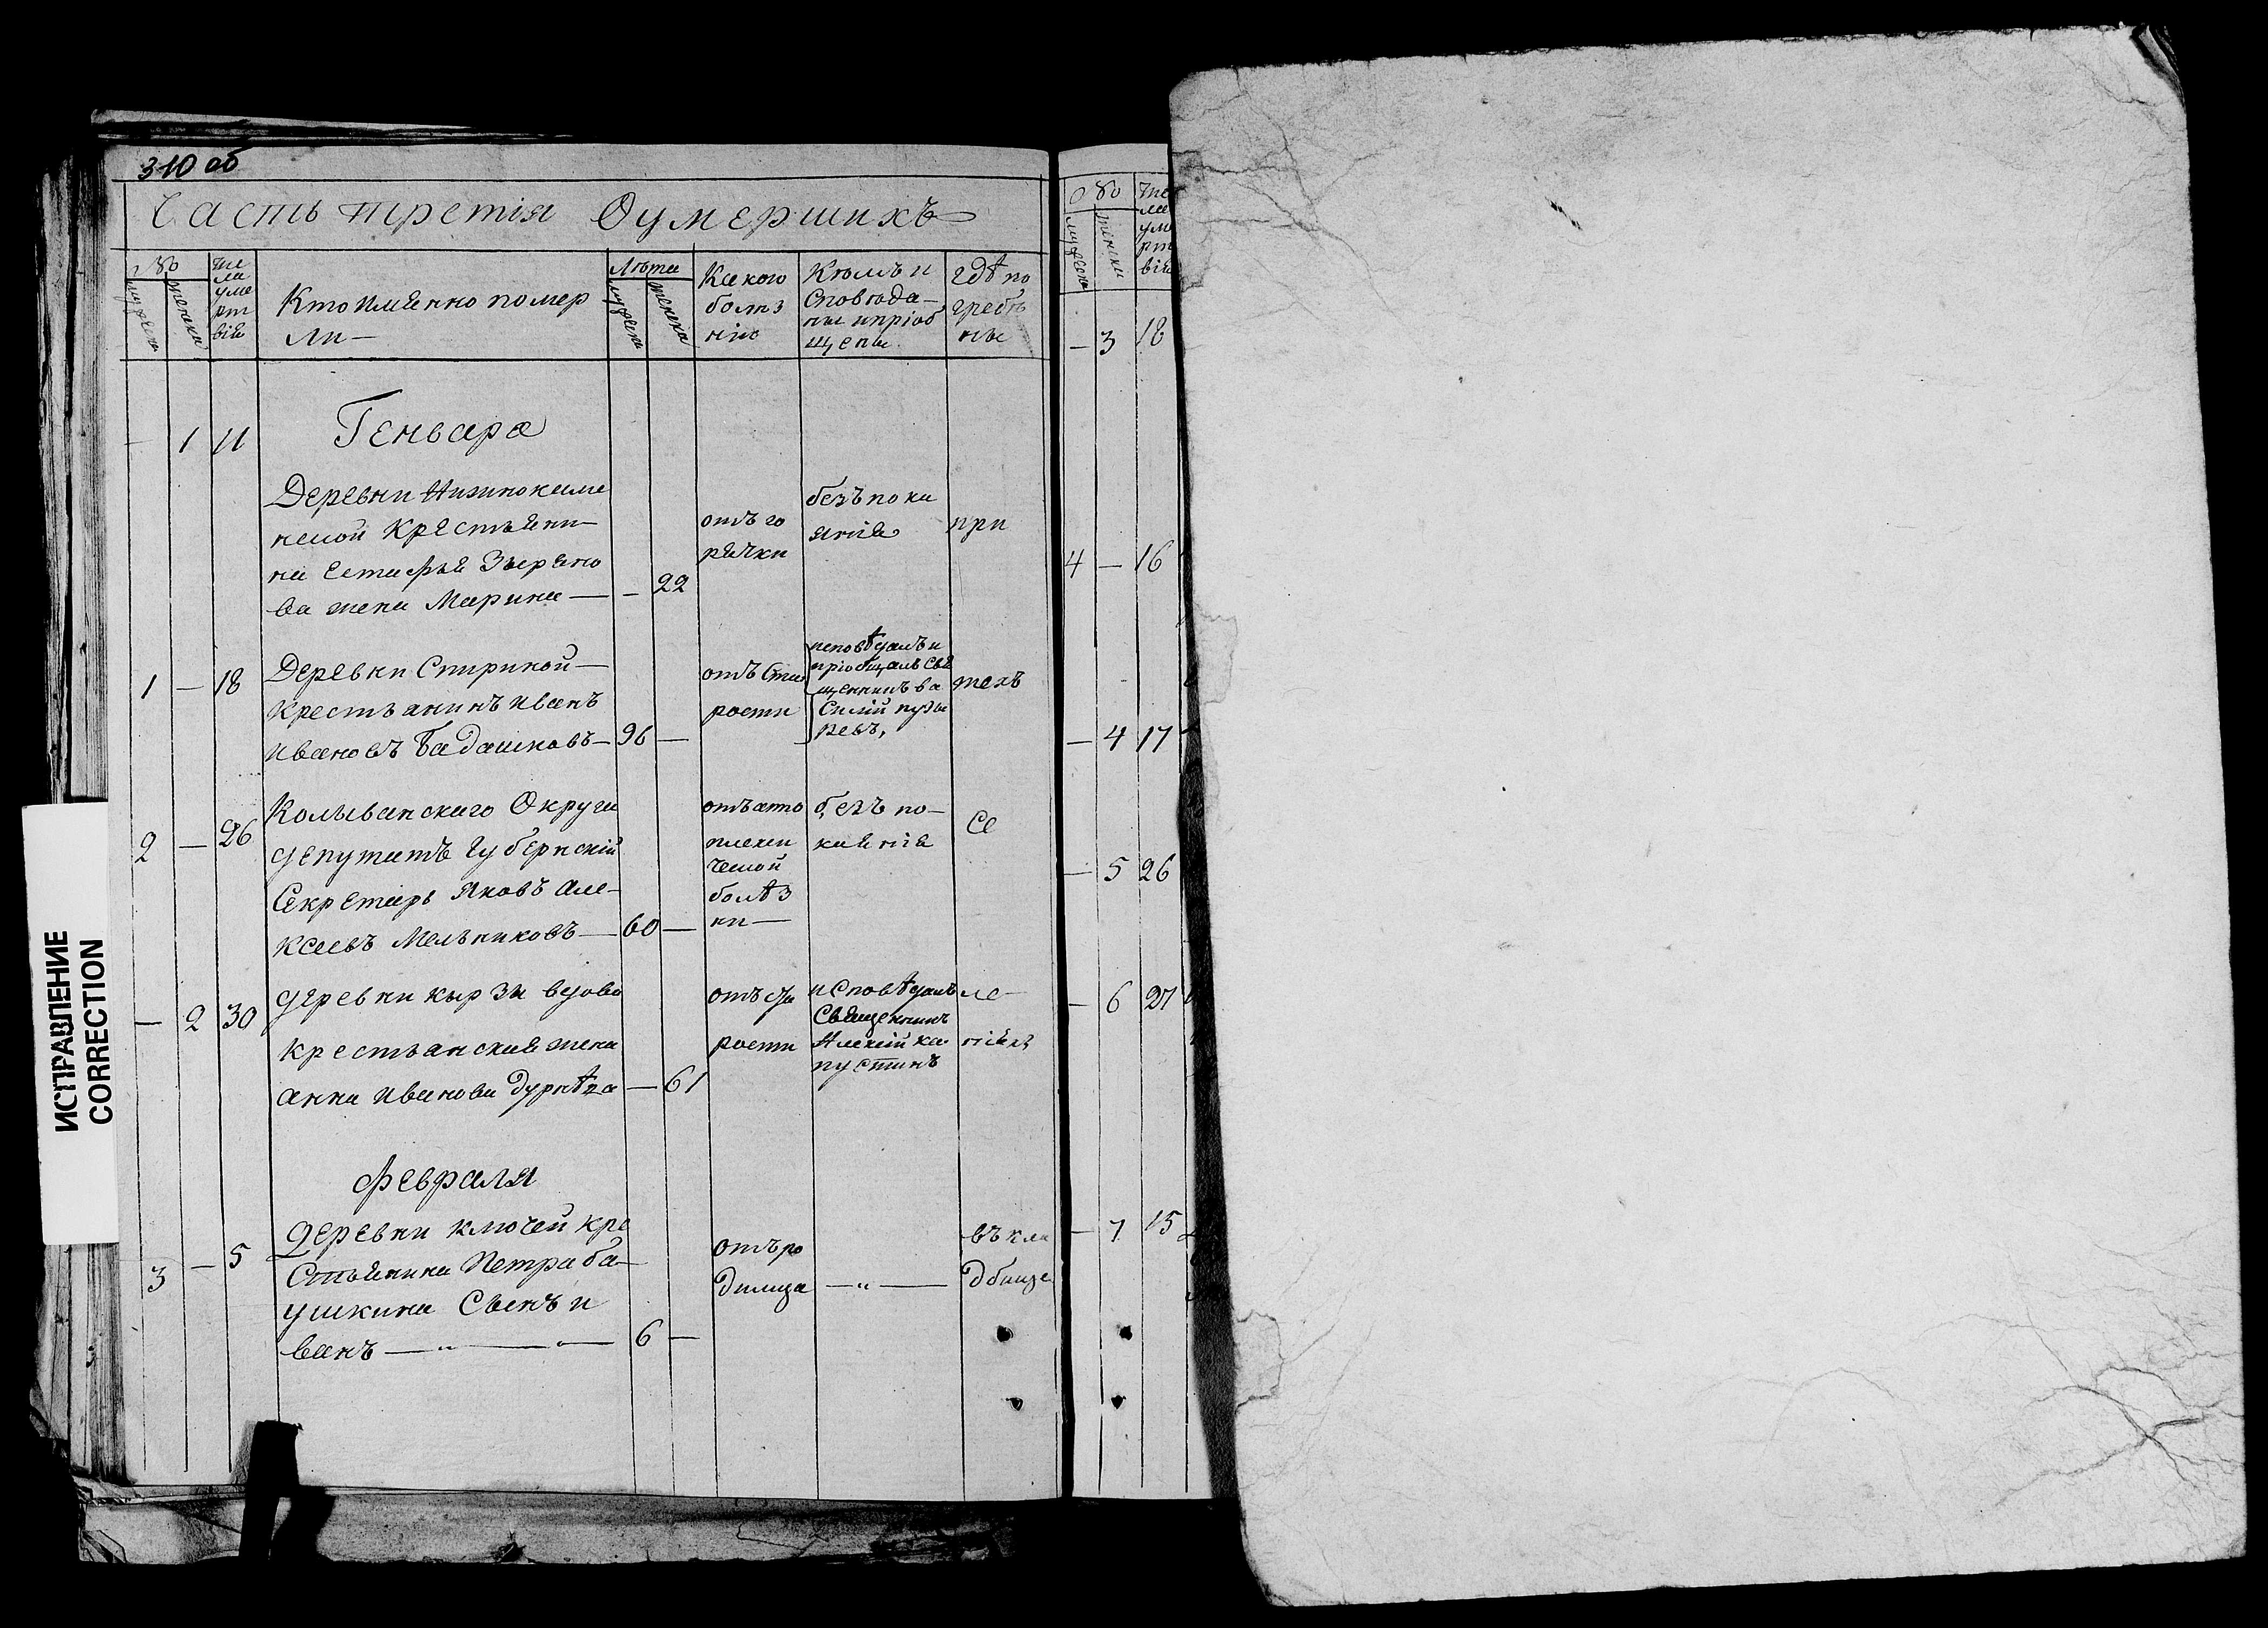 310 об
Часть третія О умершихъ
№
мужеска
женска
чис
ла
уме
рт
вія
Кто имянно помер
ли —
Лѣта
мужеска
женска
Какою
болѣз
нію
Кѣмъ и
споведа-
ны и пріоб
щены
гдѣ по
гребѣ
ны
Генваря
— 1 11
Деревни
ской Крестьяни-
на Естафья Зыряно
ва жена Марина — — 22
отъ го
рячки
безъ пока
янія
при
1 — 18
Деревни Спириной —
Крестьянинъ Иванъ
Ивановъ Бадашковъ — 96 —
отъ ста
рости
исповѣдалъ и
пріобщалъ свя
щенникъ Ва
силій пузы
ревъ,
техъ
2 — 26
Колыванскаго Округа
депутатъ Губернскій
Секретарь Яковъ Але-
ксеевъ Мельниковъ — 60 —
отъ апо
плекси
ческой
болѣз
ни —
безъ по-
каянія
се
— 2 30
деревни кырзы вдова
крестьянская жена
анна Иванова — 61
отъ ста
рости
исповѣдалъ
Священникъ
Алексій ка
пустинъ
ле-
ніяхъ
Февраля
3 — 5
Деревни ключей кре
стьянина Петра ба-
ушкина Сынъ и
ванъ — " — " — 6 —
отъ ро
димца
— " —
въ кла
дбище
№
мужеска
женска
чис
ла
уме
рт
вія
— 3 18
4 — 16
— 4 17
— 5 26
— 6 27
— 7 15
ИСПРАВЛЕНИЕ
CORRECTION